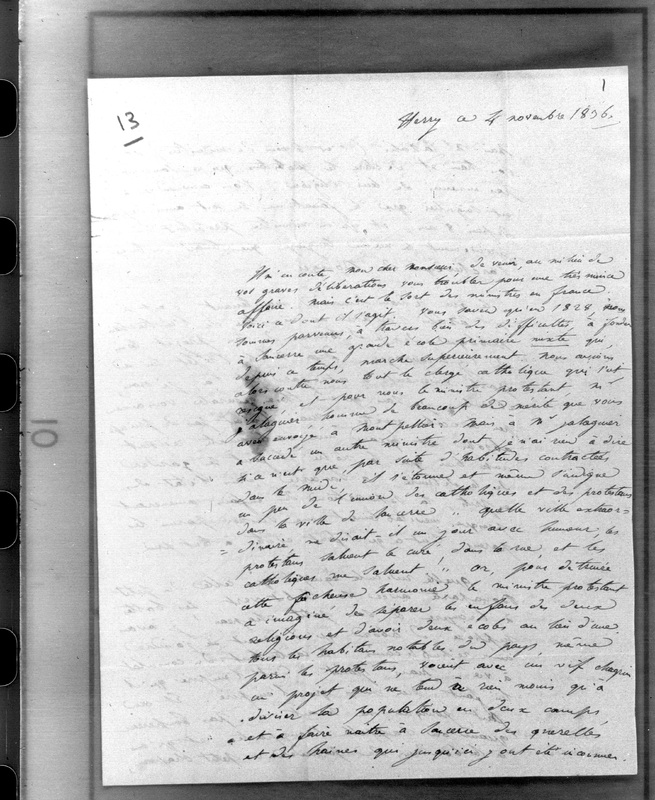 13
1
Herry ce 4 novembre 1836.
Il m'en coûte, mon cher monsieur, de venir, au milieu de
vos graves délibérations vous troubler pour une très mince
affaire. mais c'est le sort des ministres en france.
voici ce dont il s'agit. vous savez qu'en 1828, nous
sommes parvenus, à travers bien des difficultés, à fonder
à Sancerre une grande école primaire mixte qui,
depuis ce temps, marche supérieurement. nous avions
alors contre nous tout le clergé catholique qui s'est
résigné, et pour nous le ministre protestant mr
jalaguier homme de beaucoup de mérite que vous
avez envoyé à montpellier. mais à mr jalaguier
a succédé un autre ministre dont je n'ai rien à dire
si ce n'est que, par suite d'habitudes contractées
dans le midi, il s'étonne et même s'indigne
un peu de l'union des catholiques et des protestans
dans la ville de Sancerre. " quelle ville extraor=
= dinaire, me disait-il un jour avec humeur, les
protestans saluent le curé, dans la rue, et les
catholiques me saluent ". or, pour détruire
cette fâcheuse harmonie le ministre protestant
a imaginé de séparer les enfans des deux
religions et d'avoir deux écoles au lieu d'une.
tous les habitans notables du pays, même
parmi les protestans, voient avec un vif chagrin
un projet qui ne tend à rien moins qu'à
diviser la population en deux camps
et à faire naître à Sancerre des querelles
et des haines qui jusqu'ici y ont été inconnues.
10